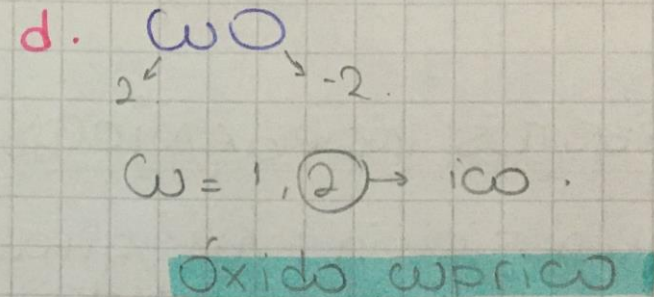 d. CuO
2 -2.
Cu = 1, 2 → ico.
Óxido cuprico